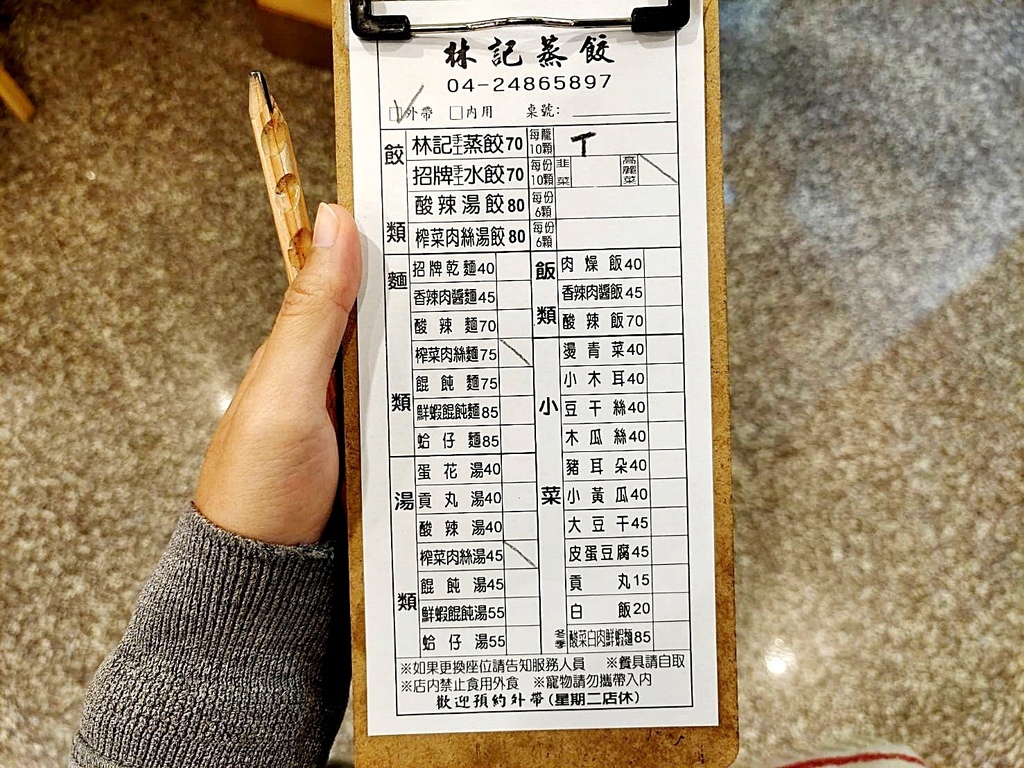 林記蒸餃
04-24865897
□外帶 □內用 桌號：
餃類
林記手工蒸餃70 每籠10顆 T
招牌手工水餃70 每份10顆 韭菜 高麗菜
酸辣湯餃80 每份6顆
榨菜肉絲湯餃80 每份6顆
麵類
招牌乾麵40
香辣肉醬麵45
酸辣麵70
榨菜肉絲麵75
餛飩麵75
鮮蝦餛飩麵85
蛤仔麵85
湯類
蛋花湯40
貢丸湯40
酸辣湯40
榨菜肉絲湯45
餛飩湯45
鮮蝦餛飩湯55
蛤仔湯55
飯類
肉燥飯40
香辣肉醬飯45
酸辣飯70
小菜
燙青菜40
小木耳40
豆干絲40
木瓜絲40
豬耳朵40
小黃瓜40
大豆干45
皮蛋豆腐45
貢丸15
白飯20
冬季 酸菜白肉鮮蝦麵85
※如果更換座位請告知服務人員 ※餐具請自取
※店內禁止食用外食 ※寵物請勿攜帶入內
歡迎預約外帶(星期二店休)